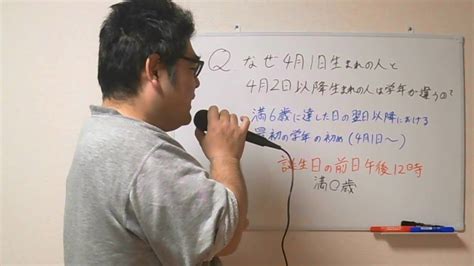 Q なぜ4月1日生まれの人と
4月2日以降生まれの人は学年が違うの?
満6歳に達した日の翌日以降における
最初の学年の初め(4月1日〜)
誕生日の前日午後12時
満○歳